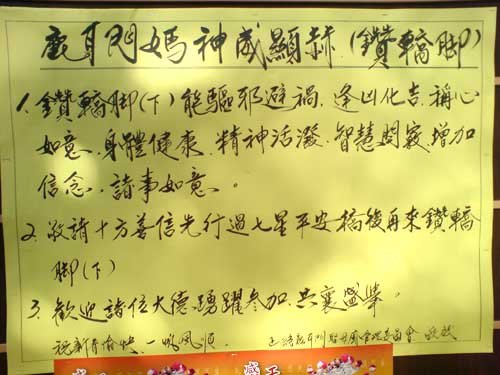 鹿耳門媽神威顯赫(鑽轎脚)
1.鑽轎脚(下)能驅邪避禍、逢凶化吉、稱心
如意、身體健康、精神活潑、智慧開竅、增加
信念、諸事如意。
2.敬請十方善信先行過七星平安橋後再來鑽轎
脚(下)
3.歡迎諸位大德踴躍參加、共襄盛舉。
祝新春愉快、一帆風順。